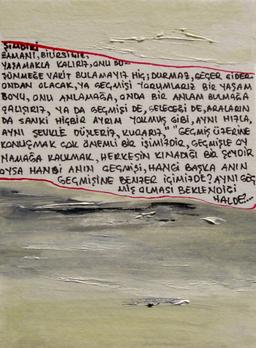 ŞİMDİKİ
ZAMANI, BİLİRSİNİZ,
YAŞAMAKLA KALIRIZ, ONU DÜ-
ŞÜNMEĞE VAKİT BULAMAYIZ HİÇ; DURMAZ, GEÇER GİDER.
ONDAN OLACAK, YA GEÇMİŞİ YORUMLARIZ BİR YAŞAM
BOYU, ONU ANLAMAĞA, ONDA BİR ANLAM BULMAĞA
ÇALIŞIRIZ, YA DA GEÇMİŞİ DE, GELECEĞİ DE, ARALARIN
DA SANKİ HİÇBİR AYRIM YOKMUŞ GİBİ, AYNI HIZLA,
AYNI ŞEKİLDE DÜŞLERİZ, KURARIZ," "GEÇMİŞ ÜZERİNE
KONUŞMAK ÇOK ÖNEMLİ BİR İŞİMİZDİR, GEÇMİŞLE OY
NAMAĞA KALKMAK, HERKESİN KINADIĞI BİR ŞEYDİR
OYSA HANGİ ANIN GEÇMİŞİ, HANGİ BAŞKA ANIN
GEÇMİŞİNE BENZER İÇİMİZDE? AYNI GEÇ
MİŞ OLMASI BEKLENDİĞİ
HALDE...